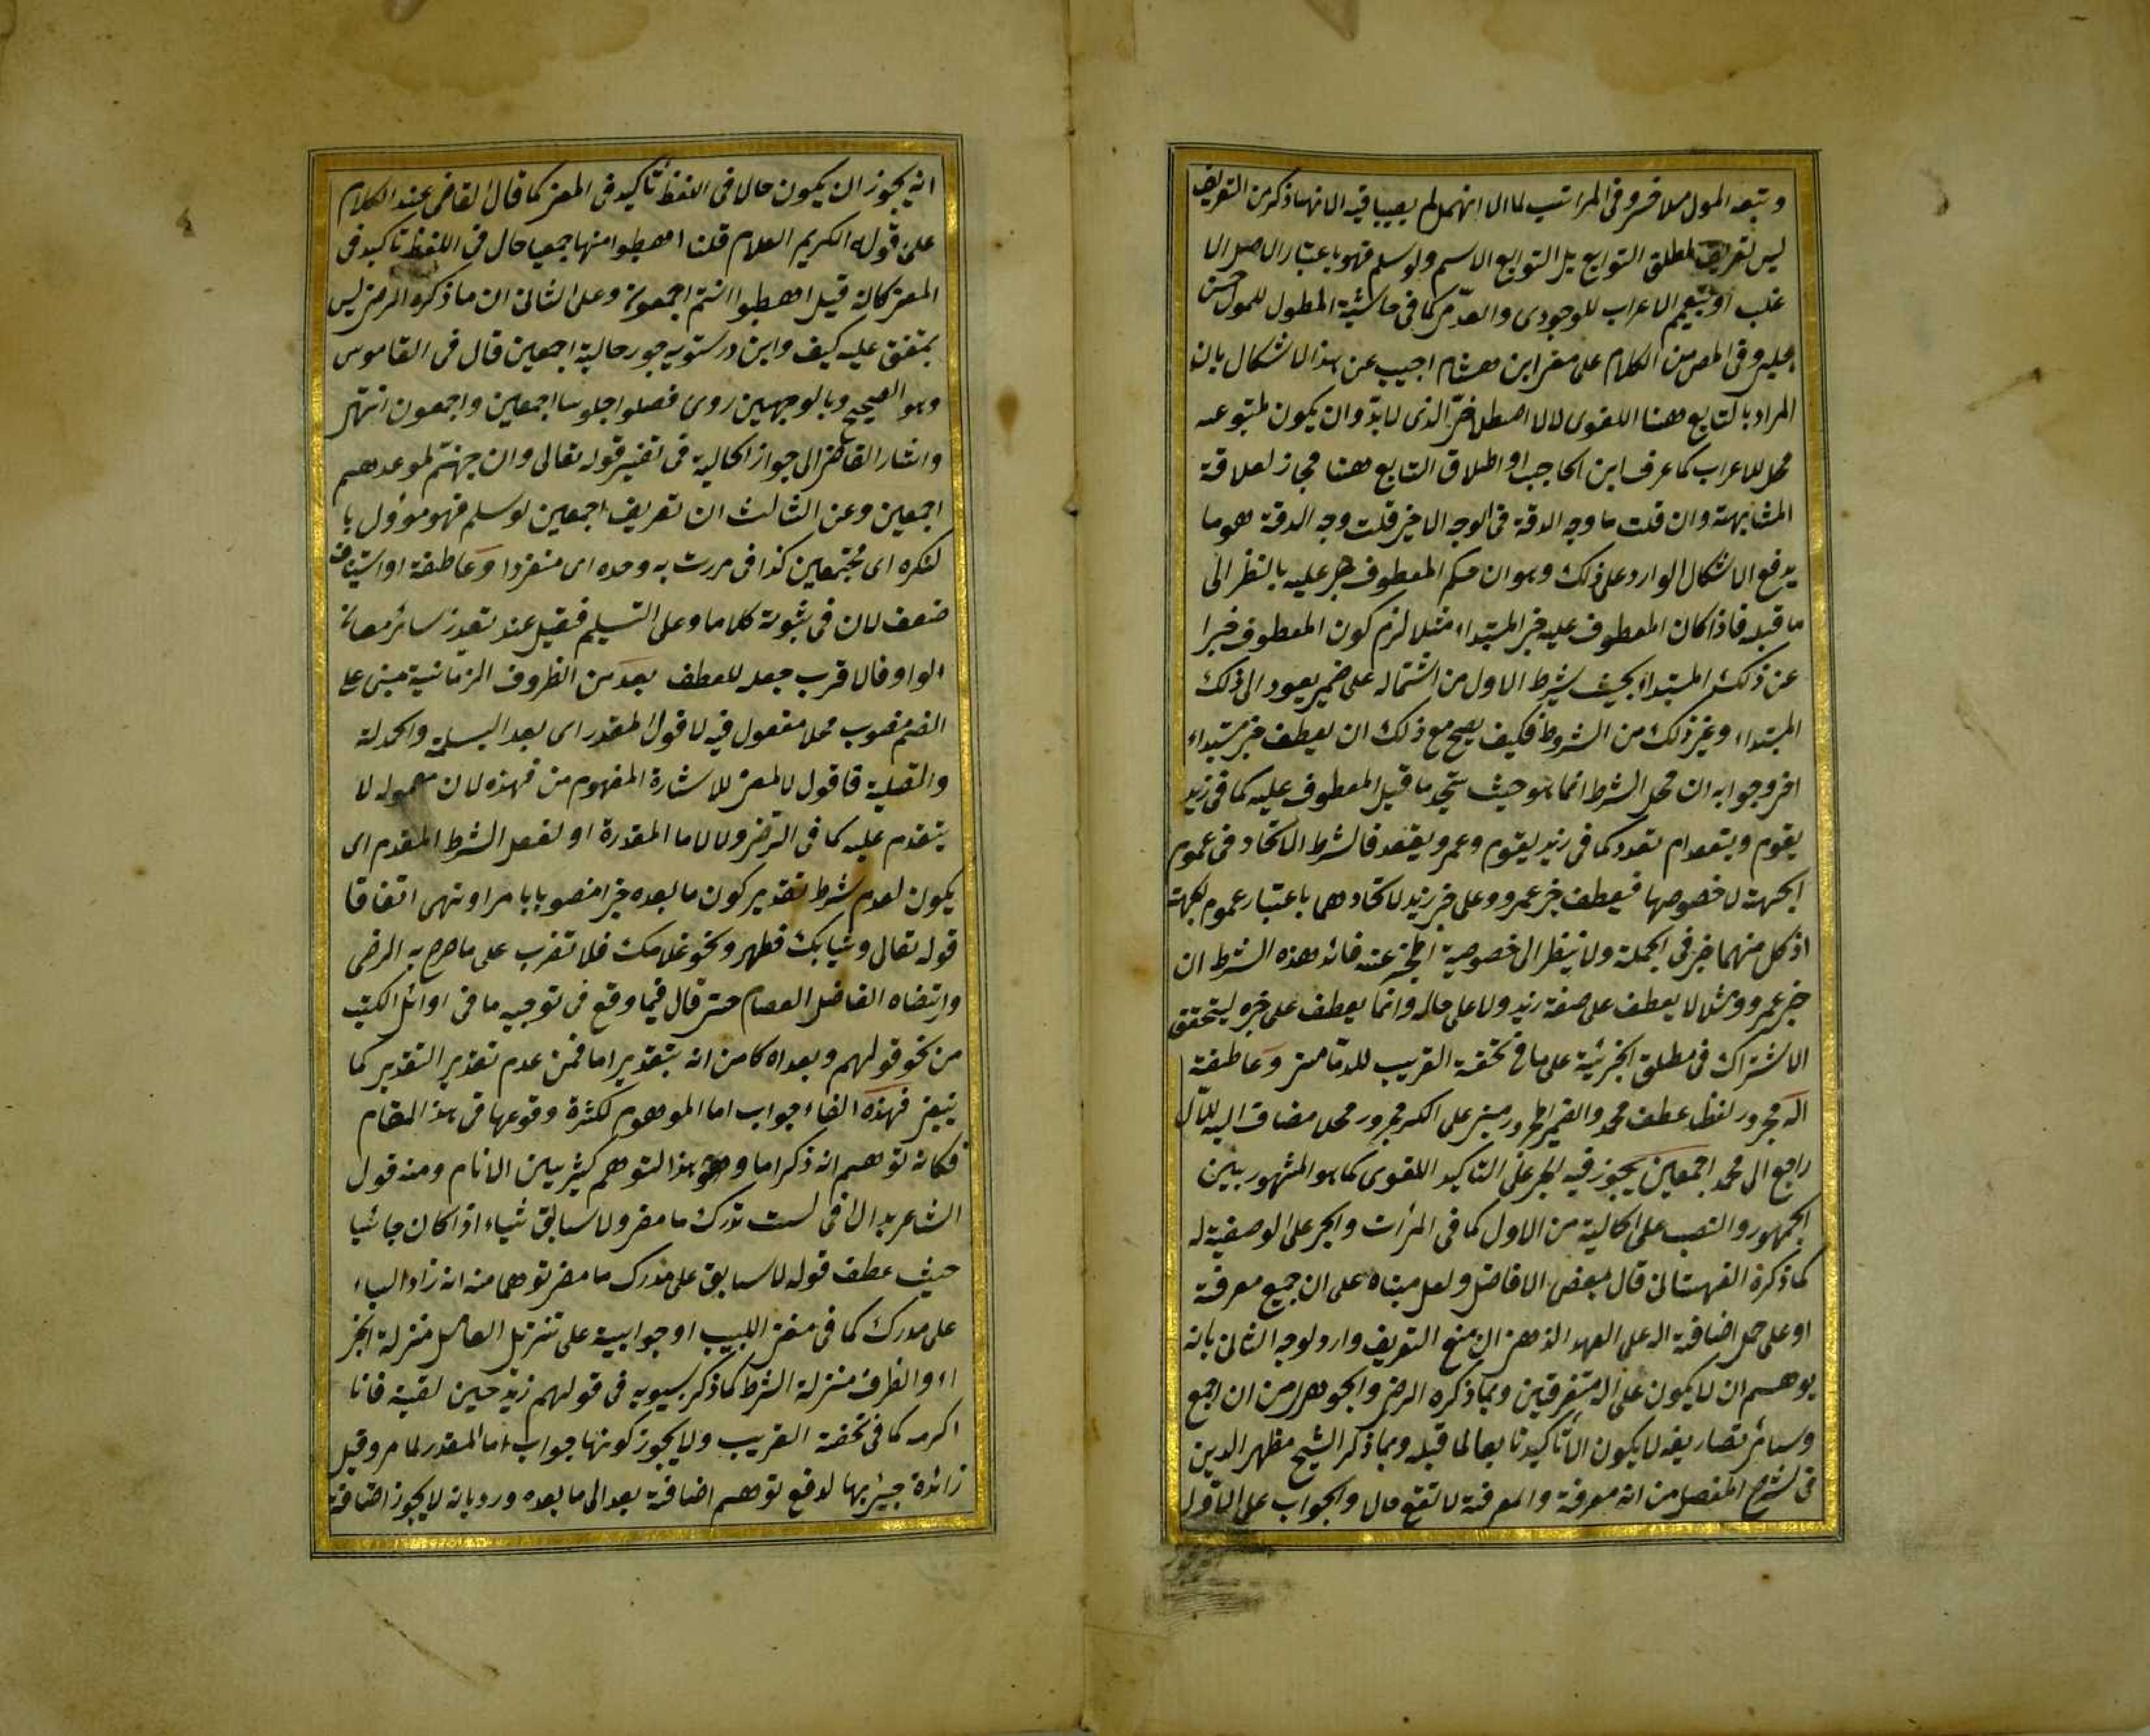 وتبعه المولى ملا خسرو فى المراتب لما الا انهما لم يصيبا فيه لانهما ذكر من التعريف
ليس تعريف لمطلق التوابع بل التوابع الاسم ولو سلم فهو باعتبار الاصل الا
غلب او بتعميم الاعراب للوجودى والعدمى كما فى حاشية المطول للمولى حسن
چلبى وفى المص من الكلام على مغنى ابن هشام اجيب عن هذا الاشكال بان
المراد بالتابع هنا اللغوى لا الاصطلاحى الذى لا بد وان يكون لمتبوعه
محل للاعراب كما عرف ابن الحاجب او اطلاق التابع هنا مجاز لعلاقة
المشابهة وان قلت ما وجه الدقة فى الوجه الاخير قلت وجه الدقة هو ما
يدفع الاشكال الوارد على ذلك وهو ان حكم المعطوف عليه بالنظر الى
ما قبله فاذا كان المعطوف عليه خبر المبتداء مثلا لزم كون المعطوف خبرا
عن ذلك المبتداء بحيث يشرط الاول من اشتماله على ضمير يعود الى ذلك
المبتداء وغير ذلك من الشروط فكيف يصح مع ذلك ان يعطف خبر مبتداء
اخر وجوابه ان محل الشرط انما هو حيث يتحد ما قبل المعطوف عليه كما فى زيد
يقوم ويقعد ام تعدد كما فى زيد يقوم وعمرو يقعد فالشرط الاتحاد فى عموم
الجهة لا خصوصها فيعطف خبر عمرو وعلى خبر زيد لاتحادهما باعتبار عموم الجهة
اذ كل منهما خبر فى الجملة ولا ينظر الى خصوصية المخبر عنه فائد هذه الشرط ان
خبر عمرو ومثلا لا يعطف على صفة زيد ولا على حاله وانما يعطف على خبره ليتحقق
الاشتراك فى مطلق الجزئية على ما فى تحفة الغريب للدمامينى وعاطفة
اله مجرور لفظا عطف محمد والضمير المجرور مبنى على الكسر مجرور محلا مضاف اليه للآل
راجع الى محمد اجمعين يجوز فيه الجر على التاكيد اللغوى كما هو المشهور بين
الجمهور والنصب على الحالية من الاول كما فى المرات والجر على الوصفية له
كما ذكره القهستانى قال بعض الافاضل ولعل مبناه على ان جميع معرفة
او على حمل اضافة اله على العهد الذهنى ان منع التعريف وارد لوجه الثانى بانه
يوهم ان لا يكون على اله متفرقين وبما ذكره الرضى والجوهرى من ان اجمع
وسائر تصاريفه لا يكون الا تاكيدا تابعا لما قبله وبما ذكر الشيخ مظهر الدين
فى شرح المفصل من انه معرفة والمعرفة لا تقع حالا والجواب على الاول
انه يجوز ان يكون حالا فى اللفظ تاكيد فى المعنى كما قال القاضى عند الكلام
على قوله الكريم العلام قلنا اهبطوا منها جميعا حال فى اللفظ تاكيد فى
المعنى كانه قيل اهبطوا انتم اجمعون وعلى الثانى ان ما ذكره الرضى ليس
بمتفق عليه كيف وابن درستويه جوز حالية اجمعين قال فى القاموس
وهو الصحيح وبالوجهين روى فصلوا جلوسا اجمعين واجمعون انتهى
واشار القاضى الى جواز الحالية فى تفسير قوله تعالى وان جهنم لموعدهم
اجمعين وعن الثالث ان تعريف اجمعين لو سلم فهو مؤول با
لنكره اى مجتمعين كذا فى مررت به وحده اى منفردا وعاطفة او استيناف
ضعف لان فى ثبوته كلاما وعلى التسليم فقيل عند تعذر سائر معانى
الواو فالاقرب جعله للعطف بعد من الظروف الزمانية مبنى على
الضم منصوب محلا مفعول فيه لاقول المقدر اى بعد البسملة والحمدلة
والتصلية فاقول لا لمعنى للاشارة المفهوم من فهذه لان معموله لا
يتقدم عليه كما فى الرضى ولا لاما المقدرة او لفعل الشرط المقدم اى
يكون لعدم شرط تقدير كون ما بعده خبرا منصوبا بامر او نهى اتفاقا
قوله تعالى وثيابك فطهر ونحو غلامك فلا تضرب على ما صرح به الرضى
وارتضاه الفاضل العصام حتى قال فيما وقع فى توجيه ما فى اوائل الكتب
من نحو قولهم وبعد اه كامن انه بتقدير اما فمن عدم تقدير التقدير كما
ينبغى فهذه الفاء جواب اما الموهوم لكثرة وقوعها فى هذا المقام
فكانه توهم انه ذكر اما وهو هذا التوهم كثير بين الانام ومنه قول
الشاعر بدا لى انى لست مدرك ما مضى ولا سابق شياء اذا كان جائيا
حيث عطف قوله لا سابق على مدرك ما مضى توهما منه انه زاد الباء
على مدرك كما فى مغنى اللبيب او جوابية على تنزيل العامل منزلة الجز
اء والظرف منزلة الشرط كما ذكر سيبويه فى قولهم زيد حين لقيته فانا
اكرمه كما فى تحفة الغريب ولا يجوز كونها جواب اما المقدر لما مر وقيل
زائدة جيئ بها لدفع توهم اضافة بعد الى ما بعده ورد بانه لا يجوز اضافة